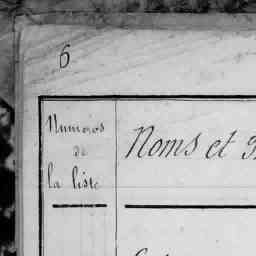 6
Numéros
de
la liste
Noms et